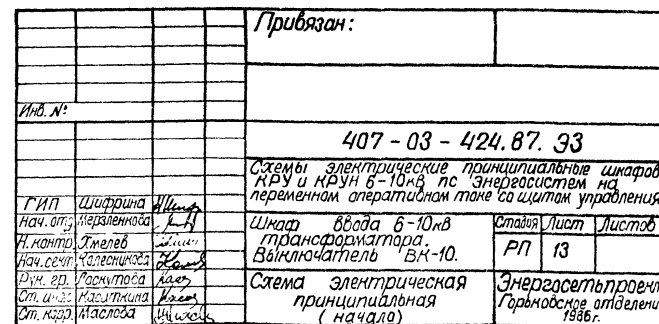 Привязан:
Инв. №:
407-03-424.87. ЭЗ
Схемы электрические принципиальные шкафов
КРУ и КРУН 6-10кВ пс энергосистем на
переменном оперативном токе со щитом управления
ГИП Шифрина
Нач. отд. Мерзленкова
Н. контр. Хмелев
Нач. сект. Колесникова
Рук. гр. Лоскутова
Ст. инж. Каситкина
Ст. кадр. Маслова
Шкаф ввода 6-10кВ
трансформатора.
Выключатель ВК-10.
Стадия Лист Листов
РП 13
Схема электрическая
принципиальная
(начало)
Энергосетьпроект
Горьковское отделени
1986г.